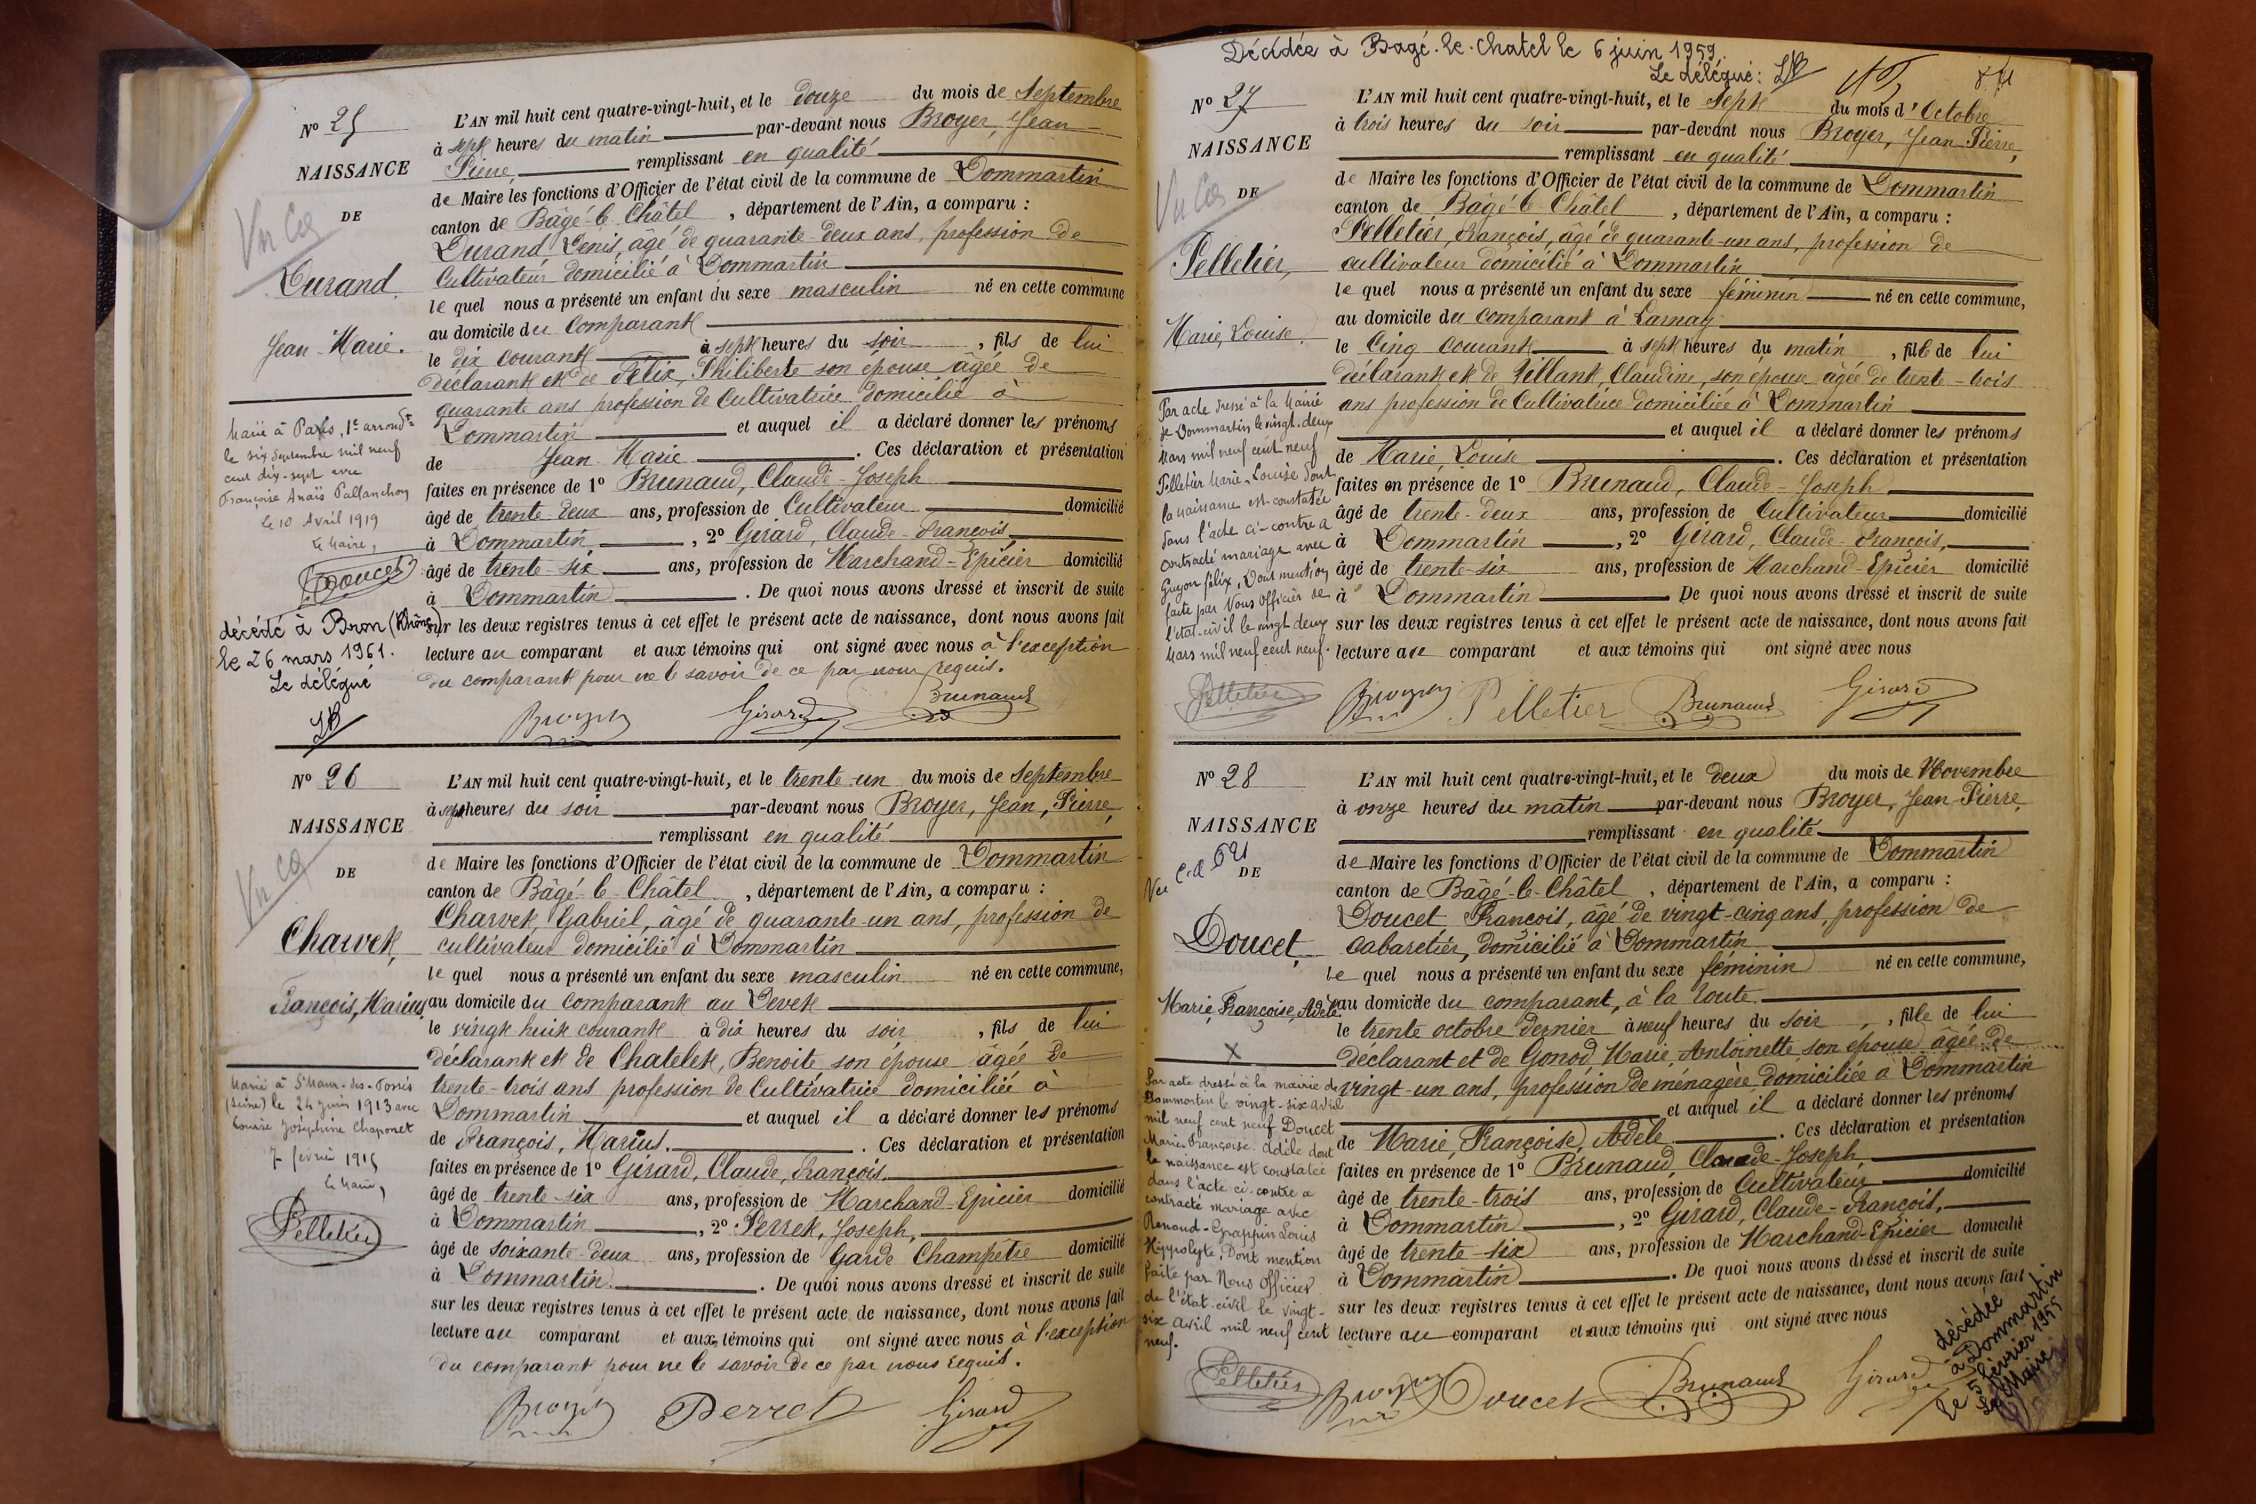 Nº 25
NAISSANCE
DE
Vu Ca
Durand
Jean-Marie.
Marié à Paris, 1e arrondt
le six Septembre mil neuf
cent dix-sept avec
Françoise Anaïs Pallanchon
le 10 Avril 1919
le Maire,
Doucet
décédé à Bron (Rhône)
le 26 mars 1961.
Le délégué
L'AN mil huit cent quatre-vingt-huit, et le douze du mois de Septembre
à sept heures du matin par-devant nous Broyer, Jean
Pierre, remplissant en qualité
de Maire les fonctions d'Officier de l'état civil de la commune de Dommartin
canton de Bâgé-le-Châtel, département de l'Ain, a comparu :
Durand, Denis, âgé de quarante-deux ans, profession de
Cultivateur domicilié à Dommartin
lequel nous a présenté un enfant du sexe masculin né en cette commune
au domicile du Comparant
le dix courant à sept heures du soir, fils de lui
déclarant et de Félix, Philiberte son épouse âgée de
quarante ans profession de Cultivatrice domicilié à
Dommartin et auquel il a déclaré donner les prénoms
de Jean Marie. Ces déclaration et présentation
faites en présence de 1º Brunaud, Claude-Joseph
âgé de trente-deux ans, profession de Cultivateur domicilié
à Dommartin, 2º Girard, Claude-François,
âgé de trente-six ans, profession de Marchand-Epicier domicilié
à Dommartin. De quoi nous avons dressé et inscrit de suite
sur les deux registres tenus à cet effet le présent acte de naissance, dont nous avons fait
lecture au comparant et aux témoins qui ont signé avec nous à l'exception
du comparant pour ne le savoir de ce par nous requis.
Broyer Girard Brunaud
Nº 26
NAISSANCE
DE
Vu ca
Charvet,
François, Marius
Marié à St Maur-des-Fossés
(Seine) le 24 juin 1913 avec
Louise Joséphine Chaponet
7 février 1915
le Maire,
Pelletier
L'AN mil huit cent quatre-vingt-huit, et le trente-un du mois de Septembre
à sept heures du soir par-devant nous Broyer, Jean, Pierre,
remplissant en qualité
de Maire les fonctions d'Officier de l'état civil de la commune de Dommartin
canton de Bâgé-le-Châtel, département de l'Ain, a comparu :
Charvet, Gabriel, âgé de quarante-un ans, profession de
cultivateur domicilié à Dommartin
lequel nous a présenté un enfant du sexe masculin né en cette commune,
au domicile du comparant au Devet
le vingt huit courant à dix heures du soir, fils de lui
déclarant et de Chatelet, Benoite son épouse âgée de
trente-trois ans profession de Cultivatrice domiciliée à
Dommartin et auquel il a déclaré donner les prénoms
de François, Marius. Ces déclaration et présentation
faites en présence de 1º Girard, Claude, François.
âgé de trente-six ans, profession de Marchand-Epicier domicilié
à Dommartin, 2º Perret, Joseph,
âgé de soixante-deux ans, profession de Garde Champêtre domicilié
à Dommartin. De quoi nous avons dressé et inscrit de suite
sur les deux registres tenus à cet effet le présent acte de naissance, dont nous avons fait
lecture au comparant et aux témoins qui ont signé avec nous à l'exception
du comparant pour ne le savoir de ce par nous requis.
Broyer Perret Girard
Décédée à Bagé-le-Chatel le 6 juin 1959.
Le délégué :
Nº 27
NAISSANCE
DE
Vu Ca
Pelletier,
Marie, Louise.
Par acte dressé à la Mairie
de Dommartin le vingt-deux
Mars mil neuf cent neuf
Pelletier Marie-Louise dont
la naissance est constatée
dans l'acte ci-contre a
contracté mariage avec
Guyon félix, Dont mention
faite par Nous Officier de
l'état-civil le vingt deux
Mars mil neuf cent neuf.
Pelletier
L'AN mil huit cent quatre-vingt-huit, et le sept du mois d'Octobre
à trois heures du soir par-devant nous Broyer, Jean Pierre,
remplissant en qualité
de Maire les fonctions d'Officier de l'état civil de la commune de Dommartin
canton de Bâgé-le-Châtel, département de l'Ain, a comparu :
Pelletier, François, âgé de quarante-un ans, profession de
cultivateur domicilié à Dommartin
lequel nous a présenté un enfant du sexe féminin né en cette commune,
au domicile du comparant à Larnay
le Cinq courant à sept heures du matin, fille de lui
déclarant et de Villant, Claudine, son épouse âgée de trente-trois
ans profession de Cultivatrice domiciliée à Dommartin
et auquel il a déclaré donner les prénoms
de Marie, Louise. Ces déclaration et présentation
faites en présence de 1º Brunaud, Claude-Joseph
âgé de trente-deux ans, profession de Cultivateur domicilié
à Dommartin, 2º Girard, Claude-François,
âgé de trente-six ans, profession de Marchand-Epicier domicilié
à Dommartin. De quoi nous avons dressé et inscrit de suite
sur les deux registres tenus à cet effet le présent acte de naissance, dont nous avons fait
lecture au comparant et aux témoins qui ont signé avec nous
Broyer Pelletier Brunaud Girard
Nº 28
NAISSANCE
DE
Vu
Doucet,
Marie, Françoise, Adèle.
X
Par acte dressé à la mairie de
Dommartin le vingt-six avril
mil neuf cent neuf Doucet
Marie-Françoise-Adèle dont
la naissance est constatée
dans l'acte ci-contre a
contracté mariage avec
Renoud-Grappin Louis
Hippolyte, Dont mention
faite par Nous Officier
de l'état-civil le vingt-
six avril mil neuf cent
neuf.
Pelletier
L'AN mil huit cent quatre-vingt-huit, et le deux du mois de Novembre
à onze heures du matin par-devant nous Broyer, Jean-Pierre,
remplissant en qualité
de Maire les fonctions d'Officier de l'état civil de la commune de Dommartin
canton de Bâgé-le-Châtel, département de l'Ain, a comparu :
Doucet François, âgé de vingt-cinq ans, profession de
cabaretier, domicilié à Dommartin
lequel nous a présenté un enfant du sexe féminin né en cette commune,
au domicile du comparant, à la route.
le trente octobre dernier à neuf heures du soir, fille de lui
déclarant et de Gonod, Marie, Antoinette son épouse âgée de
vingt-un ans, profession de ménagère domiciliée à Dommartin
et auquel il a déclaré donner les prénoms
de Marie, Françoise, Adèle. Ces déclaration et présentation
faites en présence de 1º Brunaud, Claude-Joseph
âgé de trente-trois ans, profession de Cultivateur domicilié
à Dommartin, 2º Girard, Claude-François,
âgé de trente-six ans, profession de Marchand-Epicier domicilié
à Dommartin. De quoi nous avons dressé et inscrit de suite
sur les deux registres tenus à cet effet le présent acte de naissance, dont nous avons fait
lecture au comparant et aux témoins qui ont signé avec nous
Broyer Doucet Brunaud Girard
décédée
à Dommartin
le 5 février 1955
Le Maire